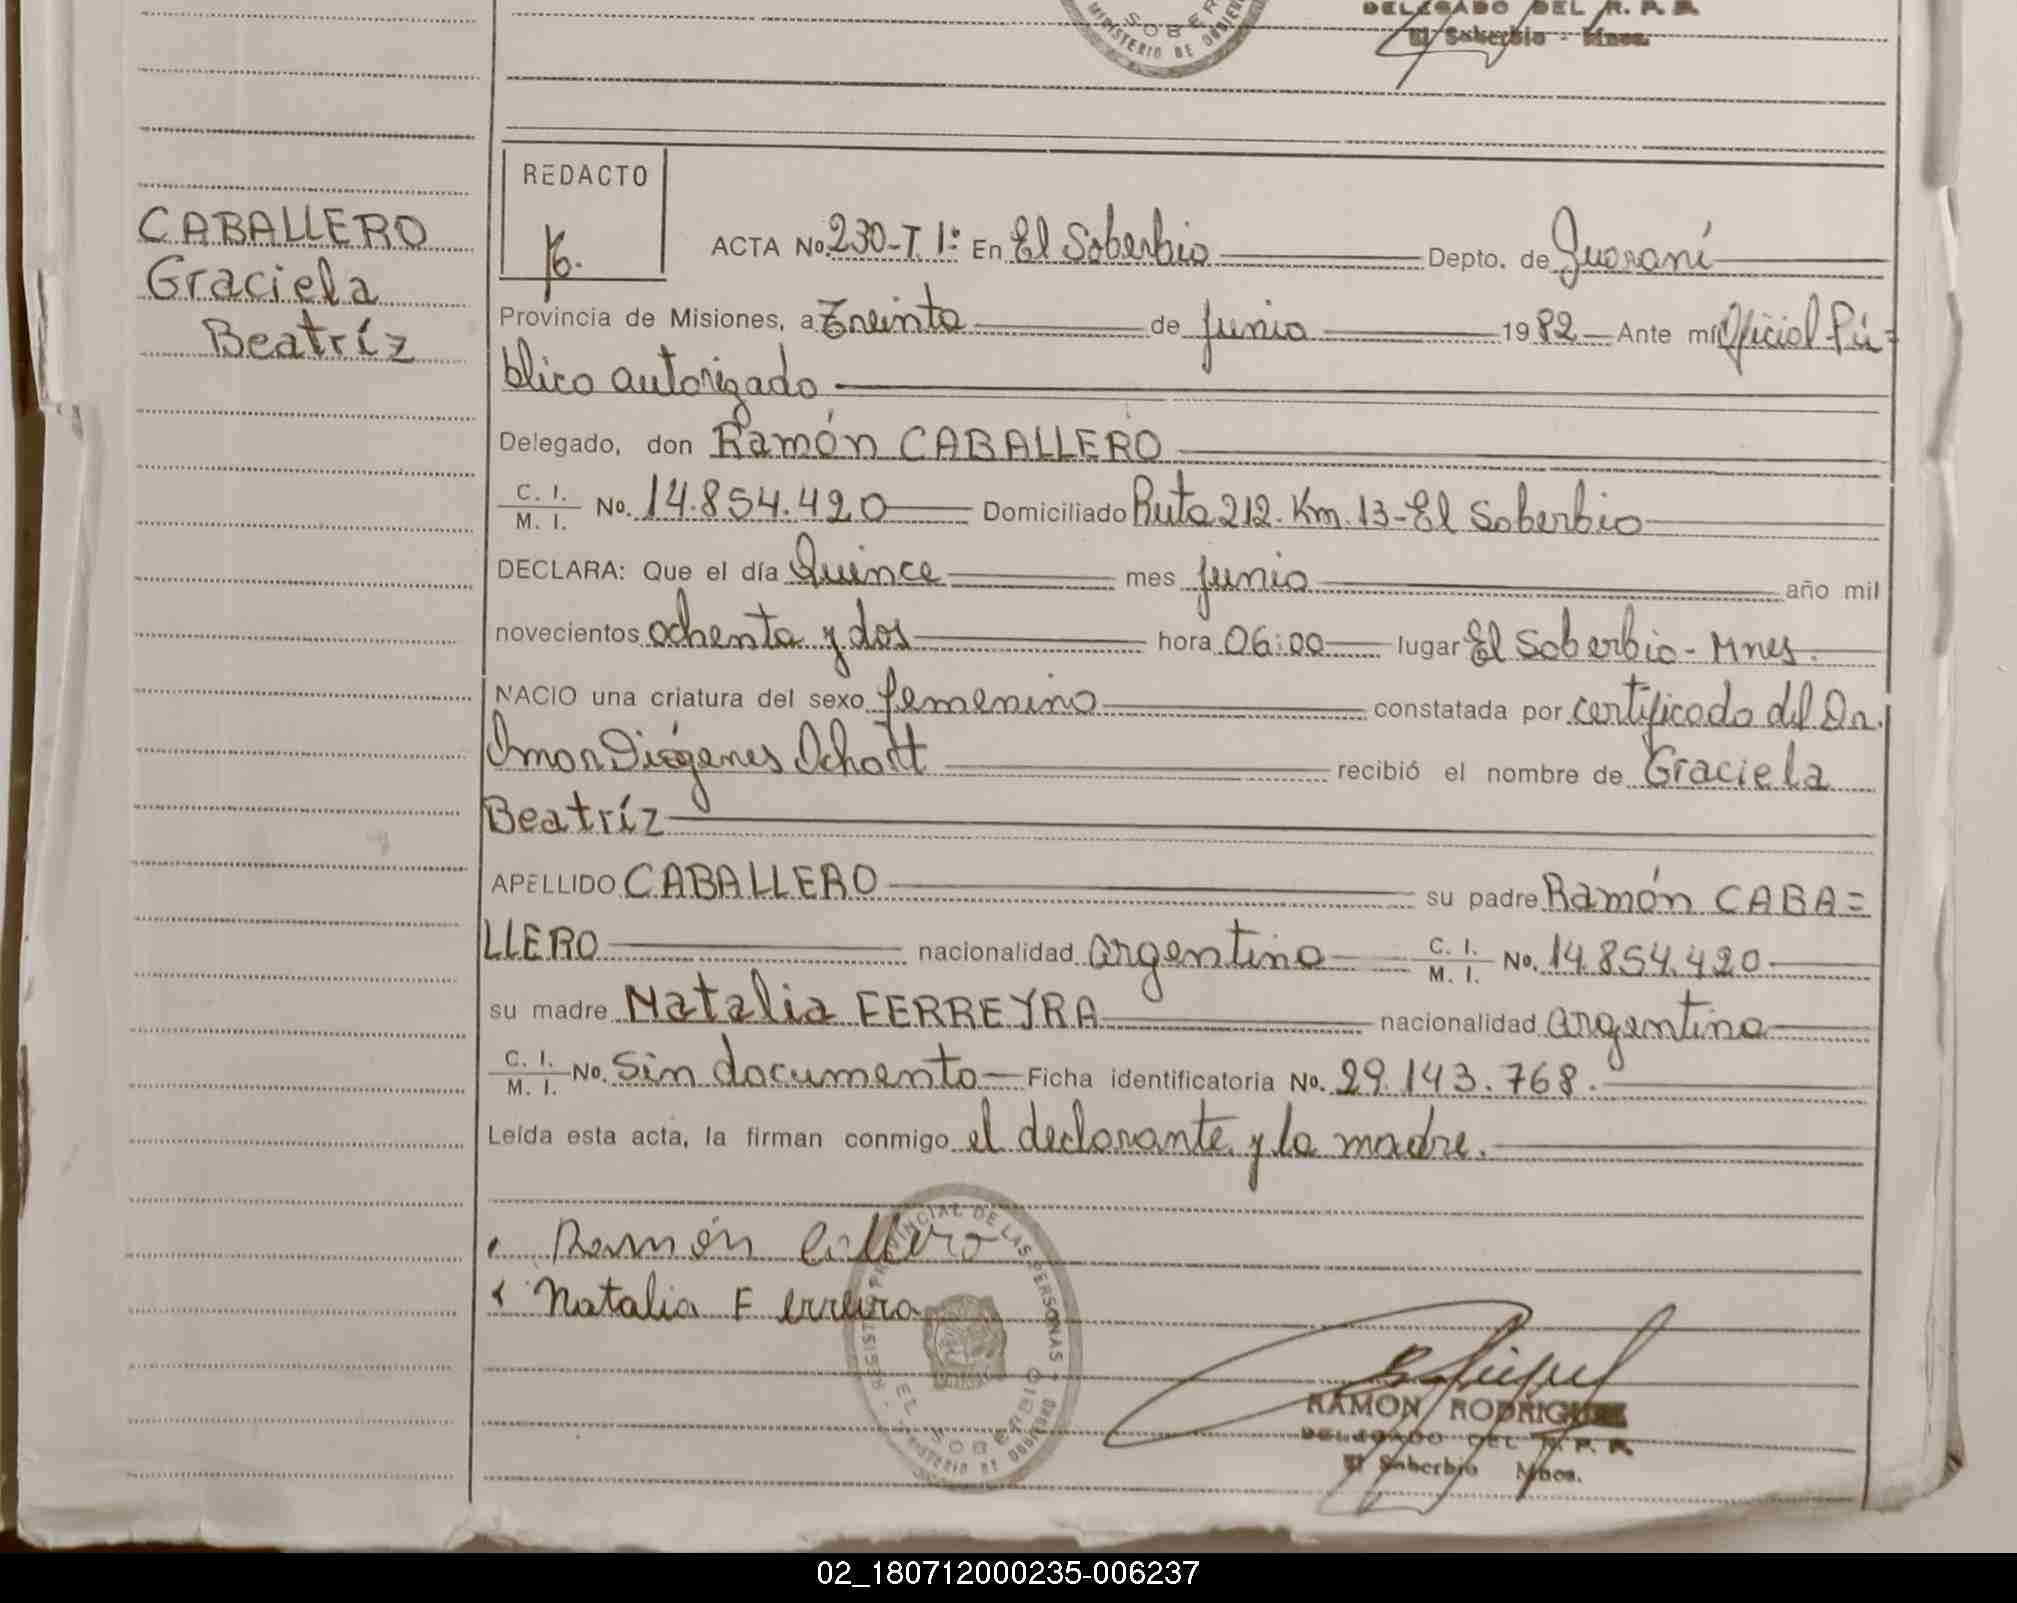 MINISTERIO DE GOBIERNO
DELEGADO DEL R. P. P.
El Soberbio - Mnes.
CABALLERO
Graciela
Beatríz
REDACTO
ACTA No. 230-T. 1º En El Soberbio Depto. de Guaraní
Provincia de Misiones, a Treinta de junio 1982 Ante mí Oficial Pú-
blico autorizado
Delegado, don Ramón CABALLERO
C. I.
M. I. No. 14.854.420 Domiciliado Ruta 212. Km. 13-El Soberbio
DECLARA: Que el día Quince mes junio año mil
novecientos ochenta y dos hora 06:00 lugar El Soberbio - Mnes.
NACIO una criatura del sexo femenino constatada por certificado del Dr.
Omar Diógenes Ochott recibió el nombre de Graciela
Beatríz
APELLIDO CABALLERO su padre Ramón CABA=
LLERO nacionalidad argentino C. I.
M. I. No. 14.854.420
su madre Natalia FERREYRA nacionalidad argentina
C. I.
M. I. No. Sin documento Ficha identificatoria No. 29.143.768.
Leída esta acta, la firman conmigo el declarante y la madre.
Ramón
Natalia Ferreira
REGISTRO PROVINCIAL DE LAS PERSONAS
EL SOBERBIO
MINISTERIO DE GOBIERNO
RAMON RODRIGUEZ
DELEGADO DEL R. P. P.
El Soberbio Mnes.
02_180712000235-006237